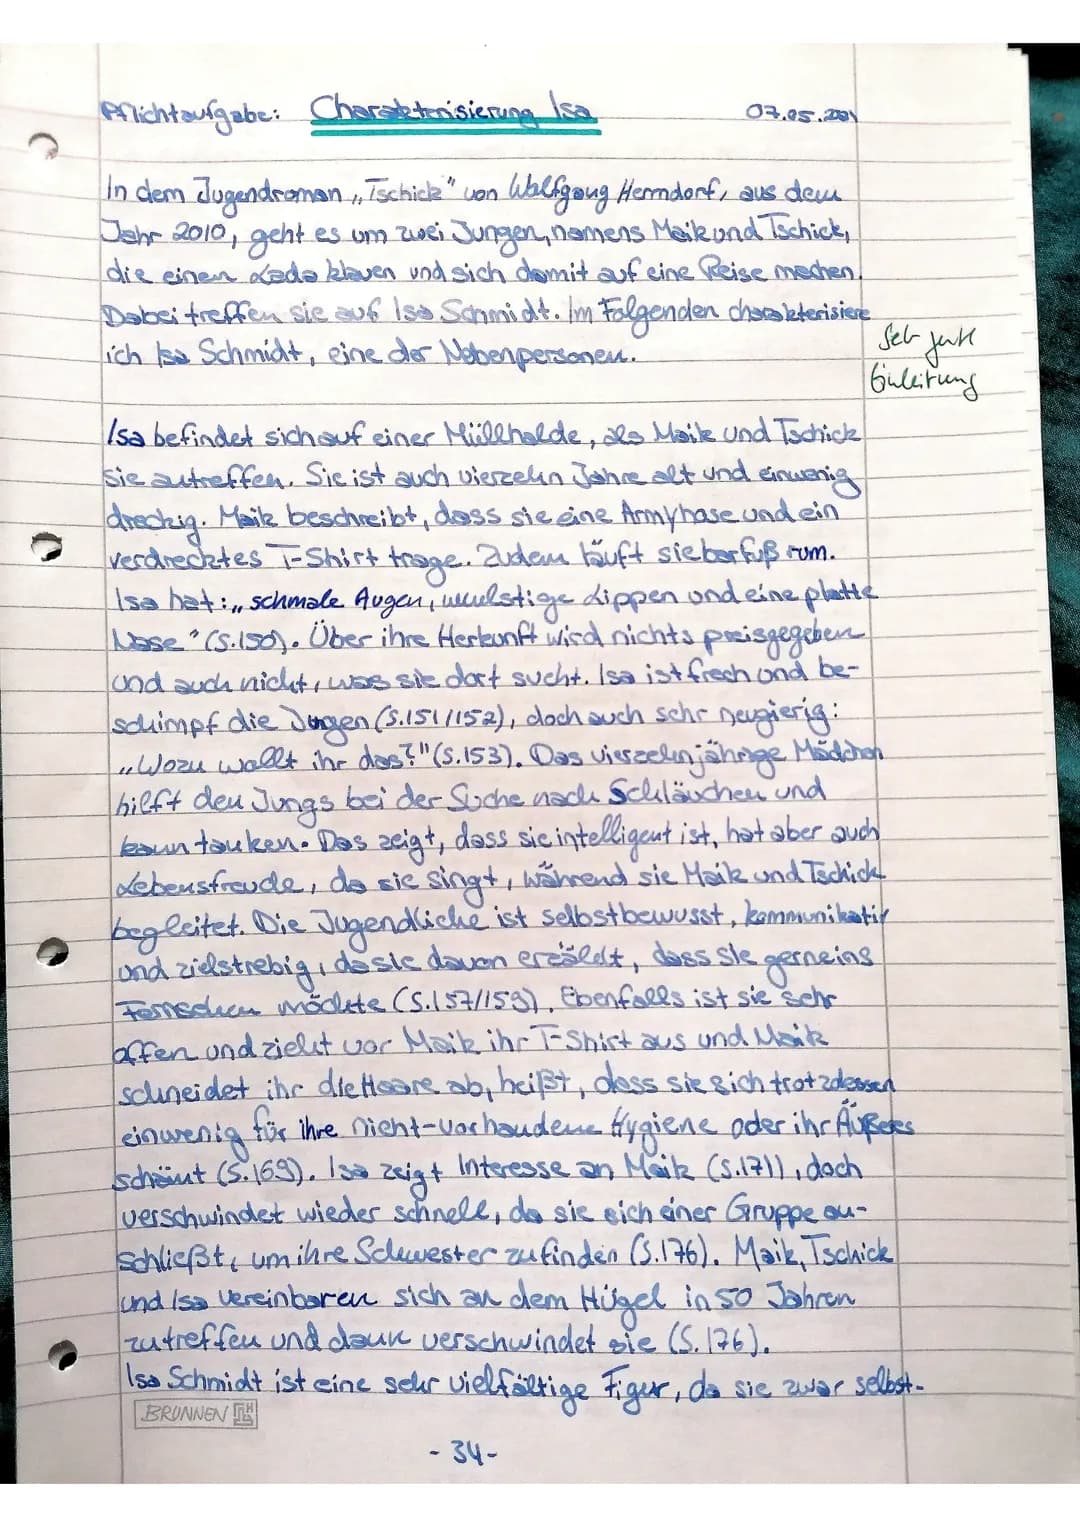 Pflichtaufgabe: Charakterisierung Isa 07.05.201
In dem Jugendroman „Tschick" von Wolfgang Herrndorf, aus dem
Jahr 2010, geht es um zwei Jungen, namens Maik und Tschick,
die einen Lada klauen und sich damit auf eine Reise machen.
Dabei treffen sie auf Isa Schmidt. Im Folgenden charakterisiere
ich Isa Schmidt, eine der Nebenpersonen.
Sehr gute
Einleitung
Isa befindet sich auf einer Müllhalde, als Maik und Tschick
sie autreffen. Sie ist auch vierzehn Jahre alt und einwenig
dreckig. Maik beschreibt, dass sie eine Armyhose und ein
verdrecktes T-Shirt trage. Zudem läuft sie barfuß rum.
Isa hat: „schmale Augen, wulstige Lippen und eine platte
Nase" (S.150). Über ihre Herkunft wird nichts preisgegeben
und auch nicht, was sie dort sucht. Isa ist frech und be-
schimpf die Jungen (S.151/152), doch auch sehr neugierig:
„Wozu wollt ihr das?" (S.153). Das vierzehnjährige Mädchen
hilft den Jungs bei der Suche nach Schläuchen und
kann tanken. Das zeigt, dass sie intelligent ist, hat aber auch
Lebensfreude, da sie singt, während sie Maik und Tschick
begleitet. Die Jugendliche ist selbstbewusst, kommunikativ
und zielstrebig, da sie davon erzählt, dass sie gerne ins
Fernsehen möchte (S.157/159). Ebenfalls ist sie sehr
offen und zieht vor Maik ihr T-Shirt aus und Maik
schneidet ihr die Haare ab, heißt, dass sie sich trotzdessen
einwenig für ihre nicht-vorhandene Hygiene oder ihr Äußeres
schämt (S.169). Isa zeigt Interesse an Maik (S.171), doch
verschwindet wieder schnell, da sie sich einer Gruppe an-
schließt, um ihre Schwester zu finden (S.176). Maik, Tschick
und Isa vereinbaren sich an dem Hügel in 50 Jahren
zu treffen und dann verschwindet sie (S.176).
Isa Schmidt ist eine sehr vielfältige Figur, da sie zwar selbst-
BRUNNEN
- 34 -